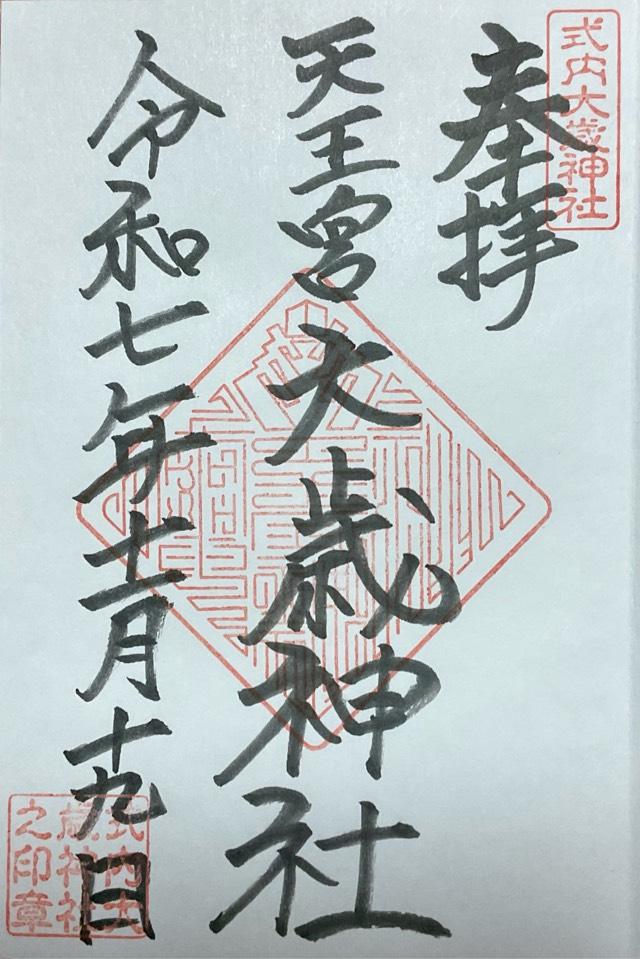 式内大歳神社
奉拝
天王宮 大歳神社
令和七年十一月十九日
式内大
歳神社
之印章